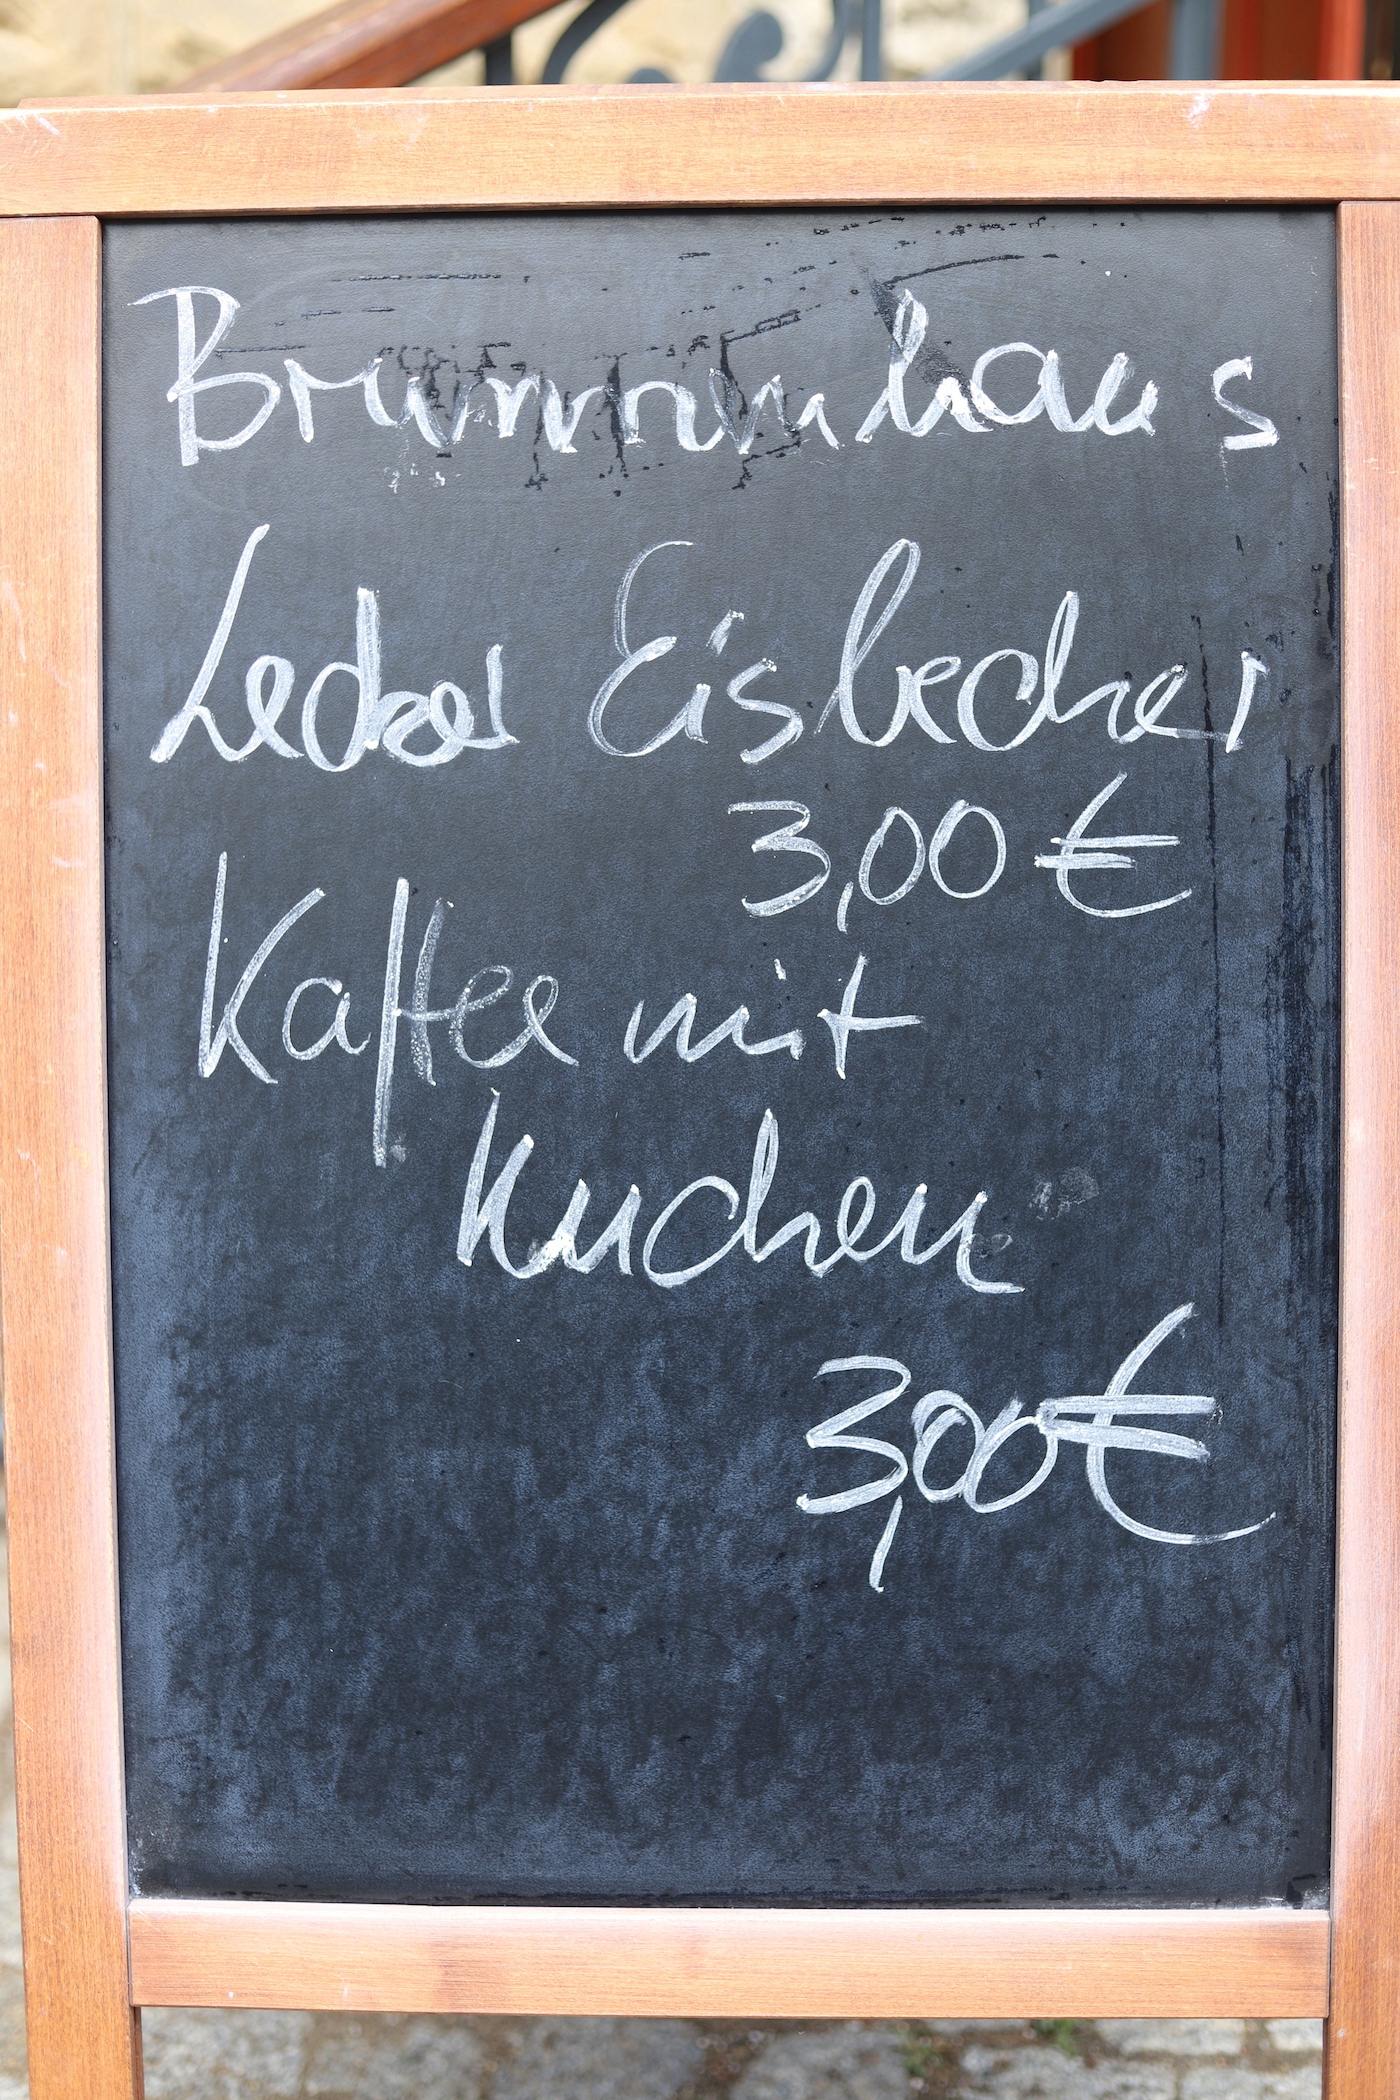 Brunnenhaus
Lecker Eisbecher
3,00 €
Kaffee mit
Kuchen
3,00 €